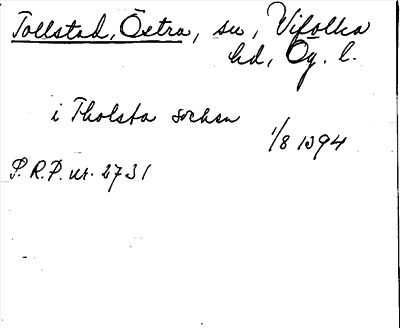 Tollstad, Östra, sn, Vifolka
hd, Ög. l.
i Tholsta sochen
1/8 1394
S.R.P. nr. 2731